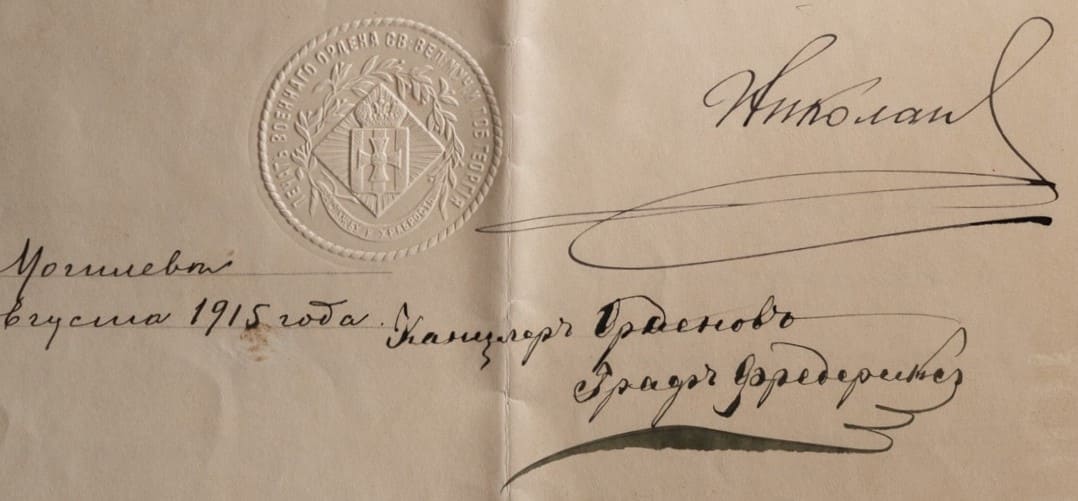 ПЕЧАТЬ ВОЕННАГО ОРДЕНА СВ. ВЕЛ.МУЧ. И ПОБ. ГЕОРГІЯ
ХРАБРОСТЬ
Николай
Могилевъ
вгуста 1915 года.
Канцлеръ Орденовъ
Графъ Фредериксъ